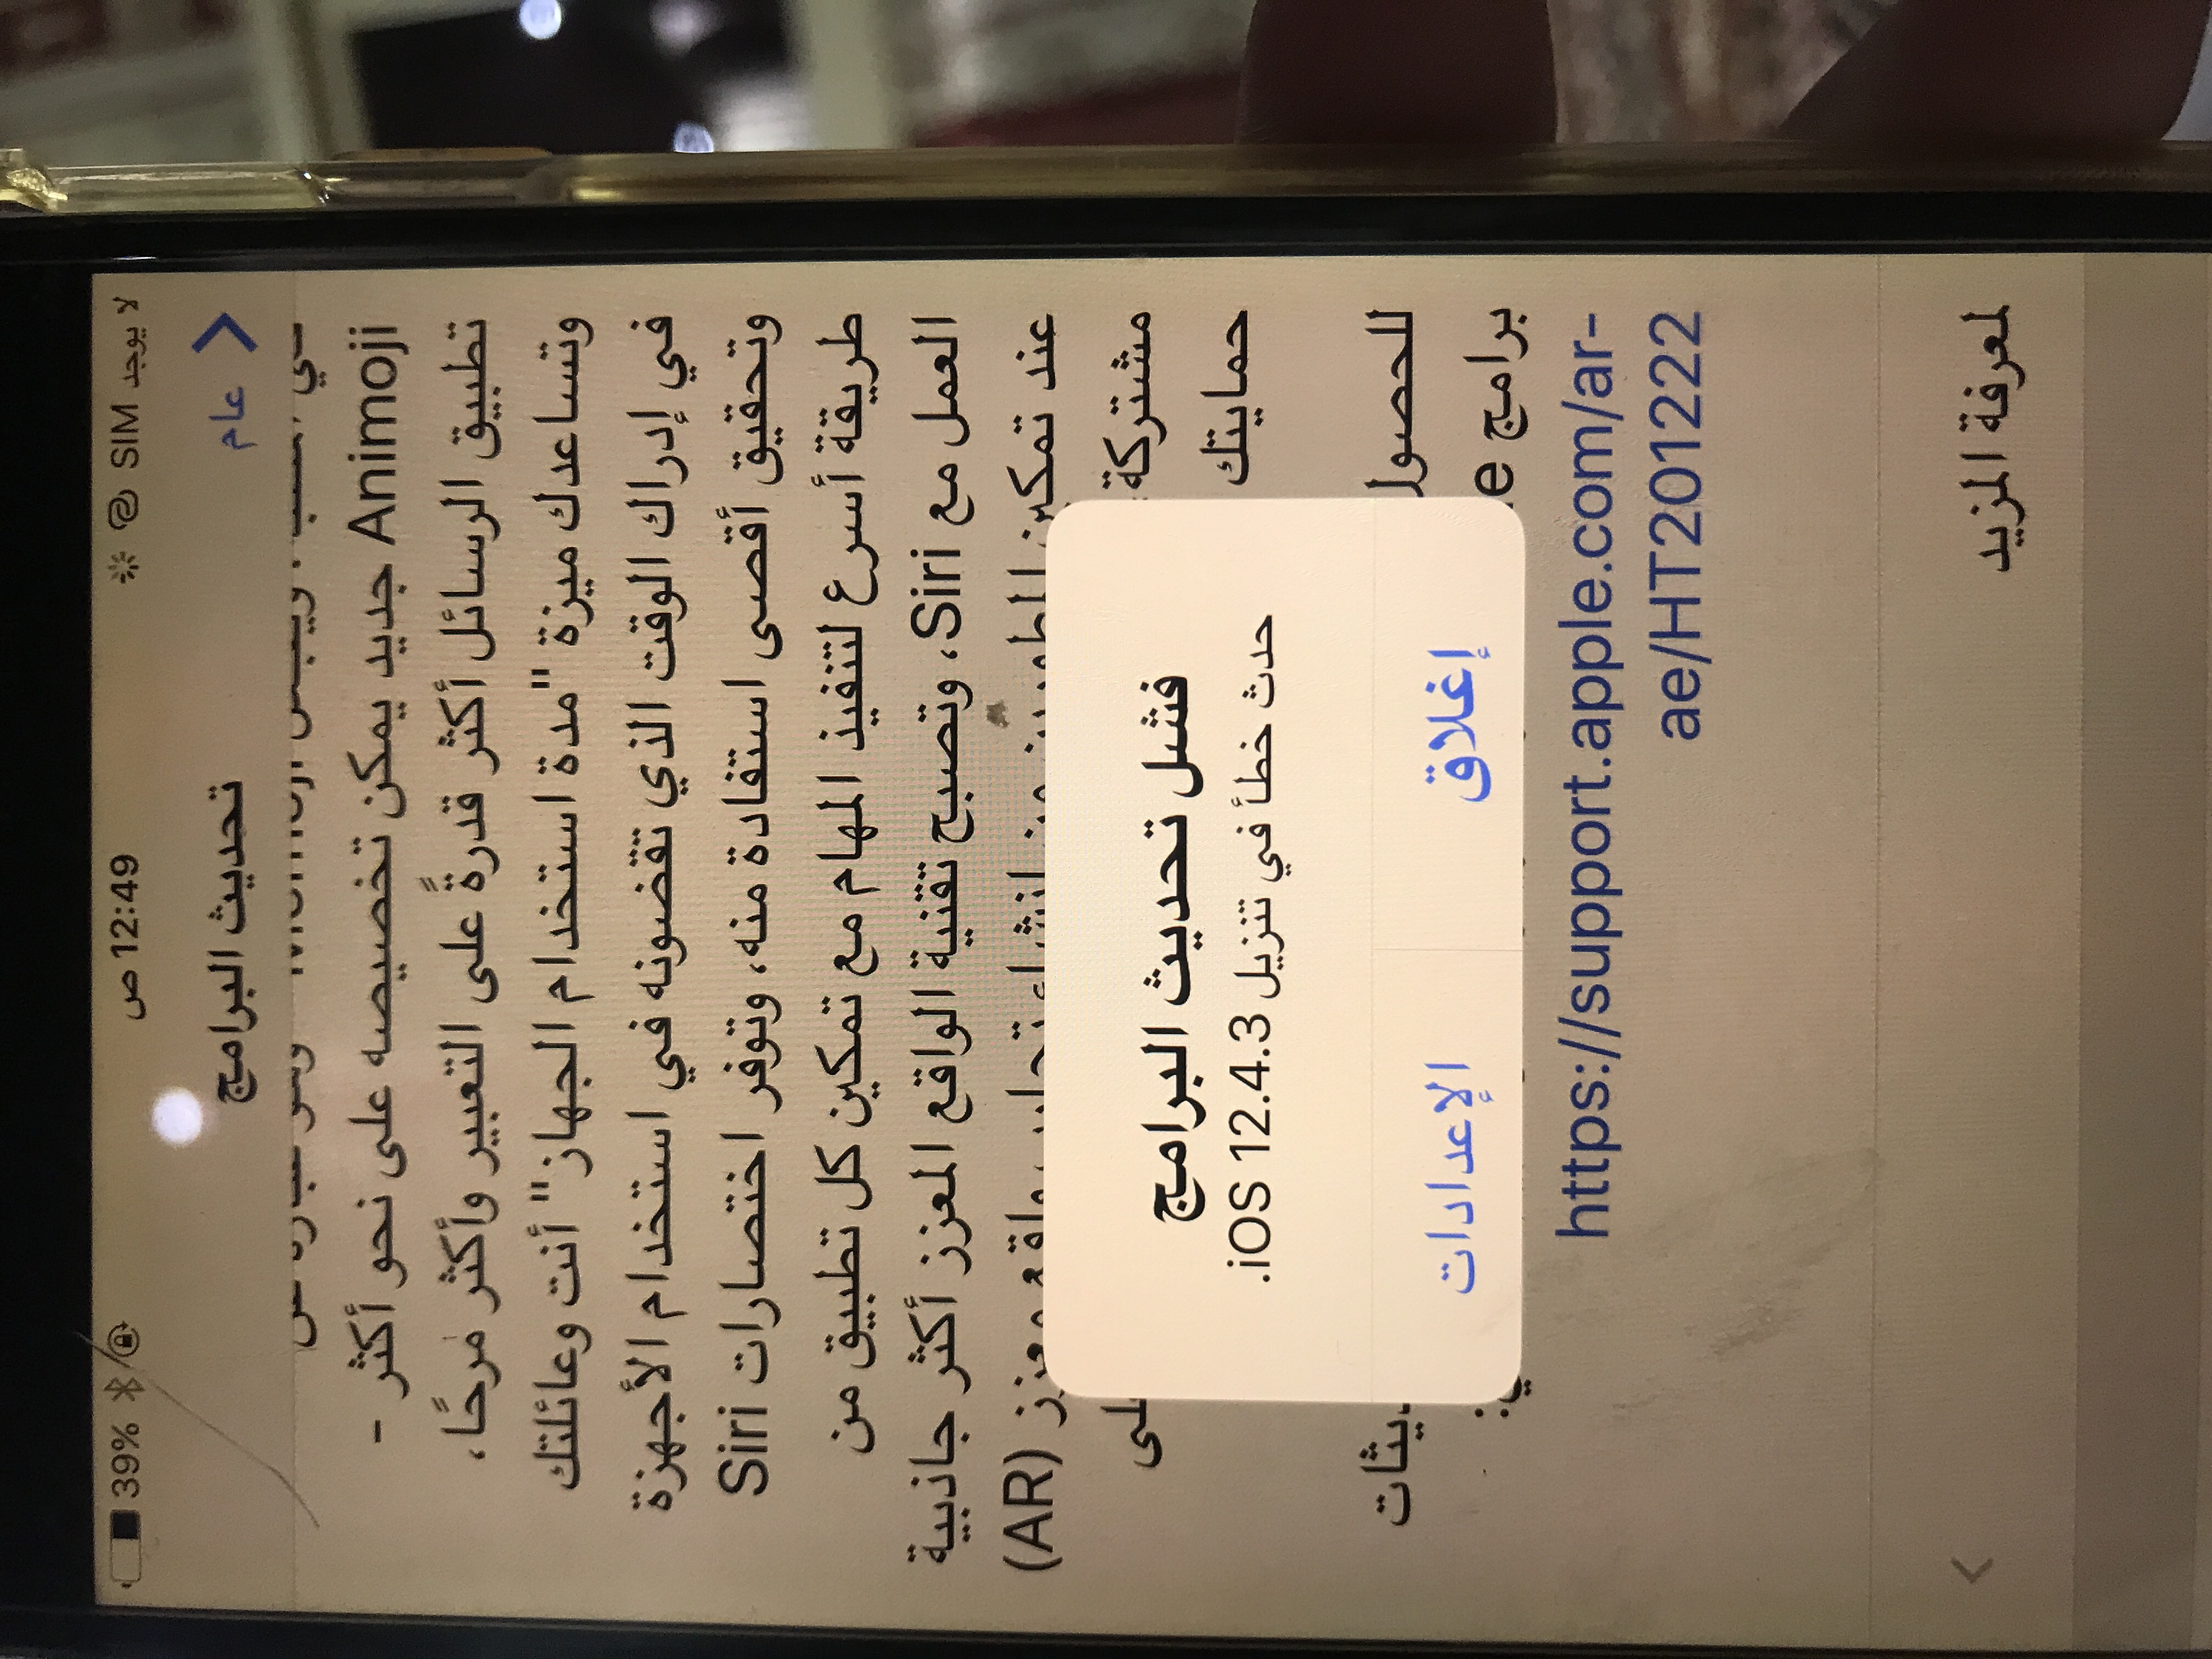 لا يوجد SIM
12:49 ص
39%
عام
تحديث البرامج
Animoji جديد يمكن تخصيصه على نحو أكثر -
تطبيق الرسائل أكثر قدرةً على التعبير وأكثر مرحًا،
وتساعدك ميزة "مدة استخدام الجهاز" أنت وعائلتك
في إدراك الوقت الذي تقضونه في استخدام الأجهزة
وتحقيق أقصى استفادة منه، وتوفر اختصارات Siri
طريقة أسرع لتنفيذ المهام مع تمكين كل تطبيق من
العمل مع Siri، وتصبح تقنية الواقع المعزز أكثر جاذبية
عند تمكين المطورين من إنشاء تجارب واقع معزز (AR)
مشتركة
حمايتك
فشل تحديث البرامج
حدث خطأ في تنزيل iOS 12.4.3.
إغلاق
الإعدادات
للحصول
برامج
https://support.apple.com/ar-
ae/HT201222
لمعرفة المزيد